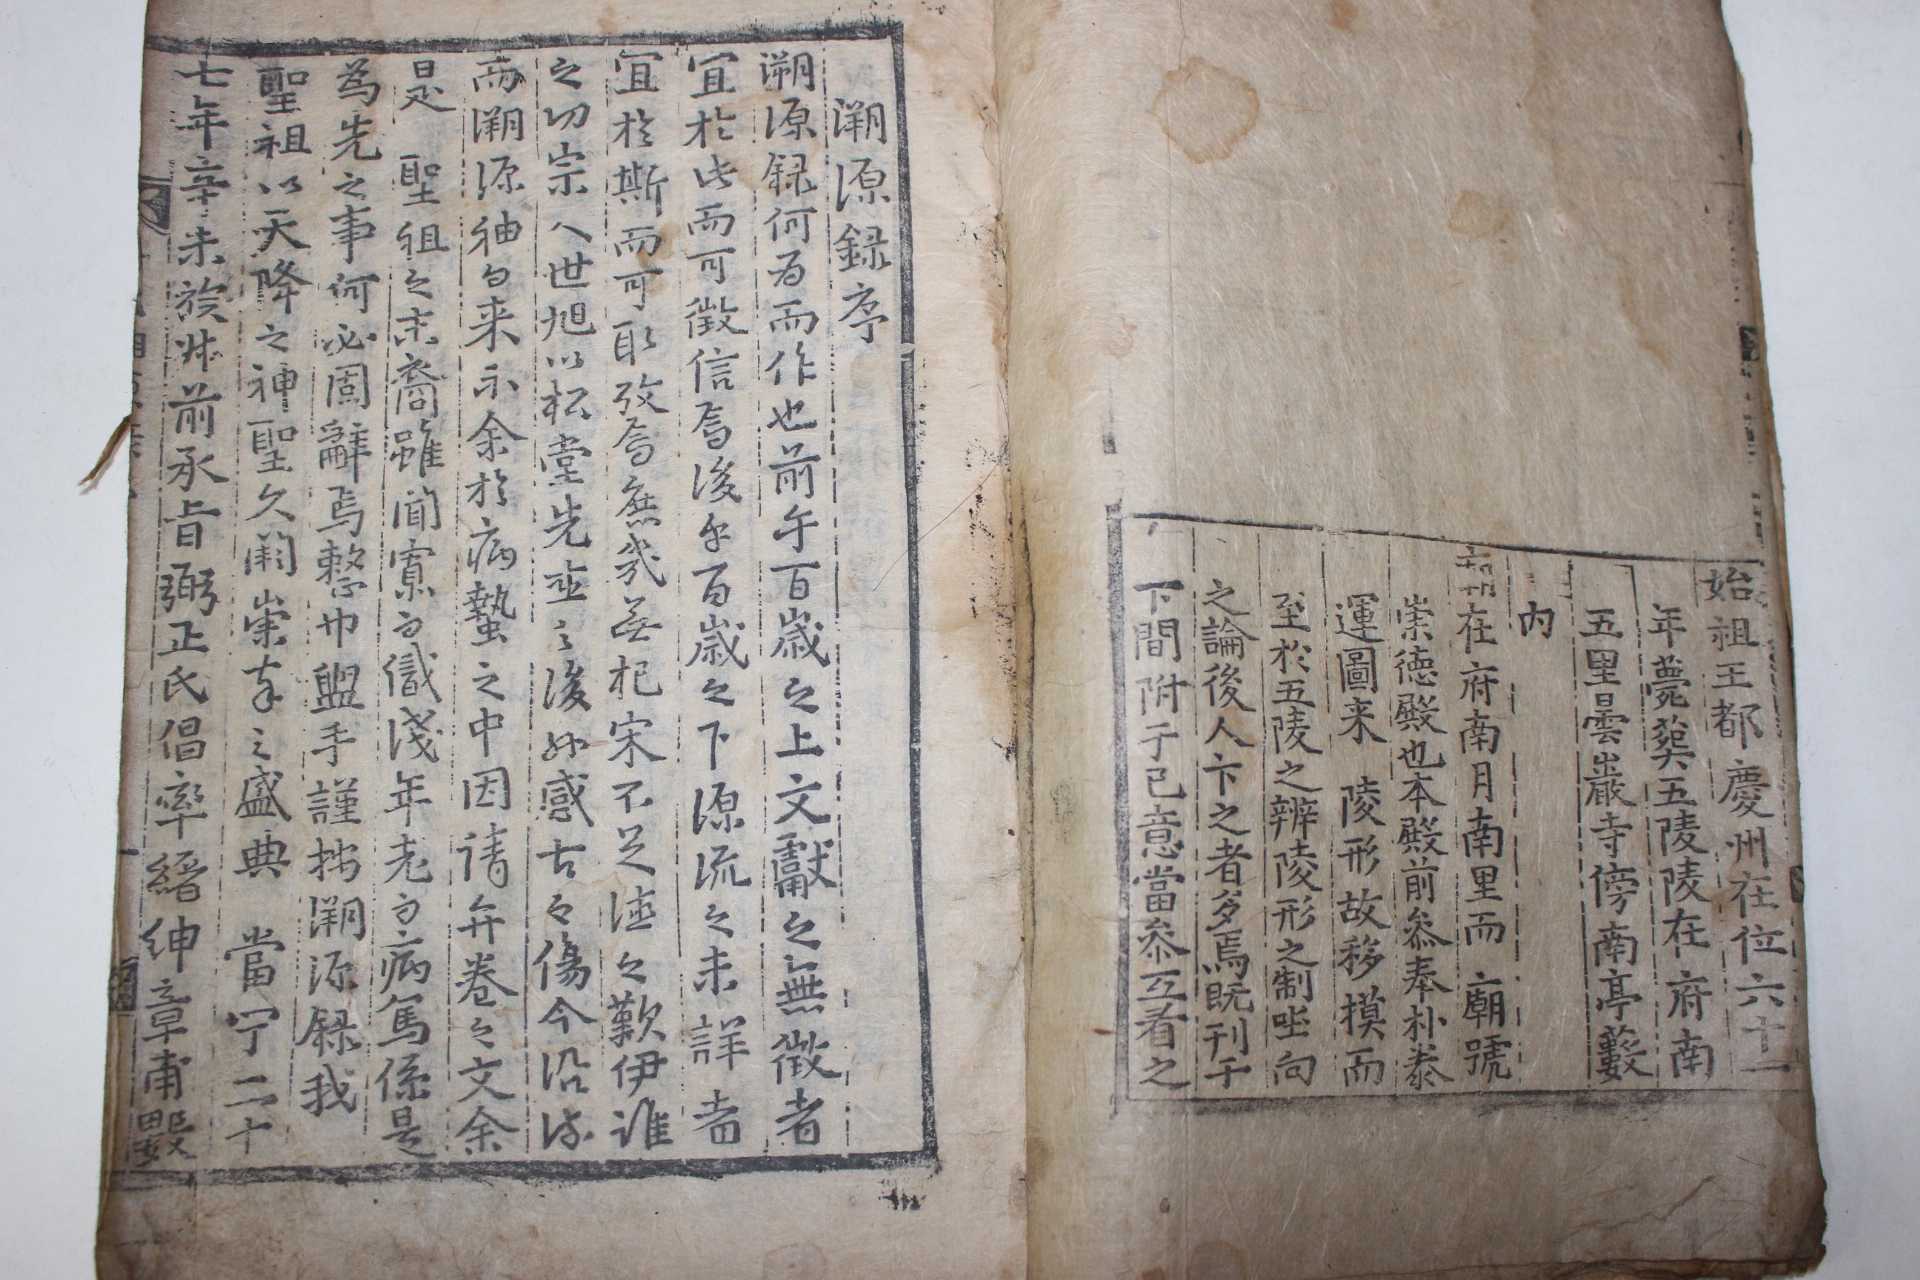 始祖王都慶州在位六十一
年薨葬五陵陵在府南
五里曇巖寺傍南亭藪
內
廟在府南月南里而廟號
崇德殿也本殿前叅奉朴泰
運圖來陵形故移摸而
至於五陵之辨陵形之制坐向
之論後人卞之者多焉既刊于
下間附于己意當叅互看之
溯源錄序
溯源録何为而作也前乎百歲之上文獻之無徵者
宜於此而可徵信焉後乎百歲之下源流之未詳者
宜於斯而可取攷焉庶幾無杞宋不足徵之歎伊誰
之功宗人世旭以松堂先正之後
感古之傷今沿流
而溯源袖以来示余於病蟄之中因请弁卷之文余
是聖祖之末裔雖聞寡而識淺年老而病篤係是
為先之事何必固辭焉整巾盥手謹按溯源録我
聖祖以天降之神聖久闕崇奉之盛典當宁二十
七年辛未族姪前承旨弼正氏倡率縉紳章甫毆